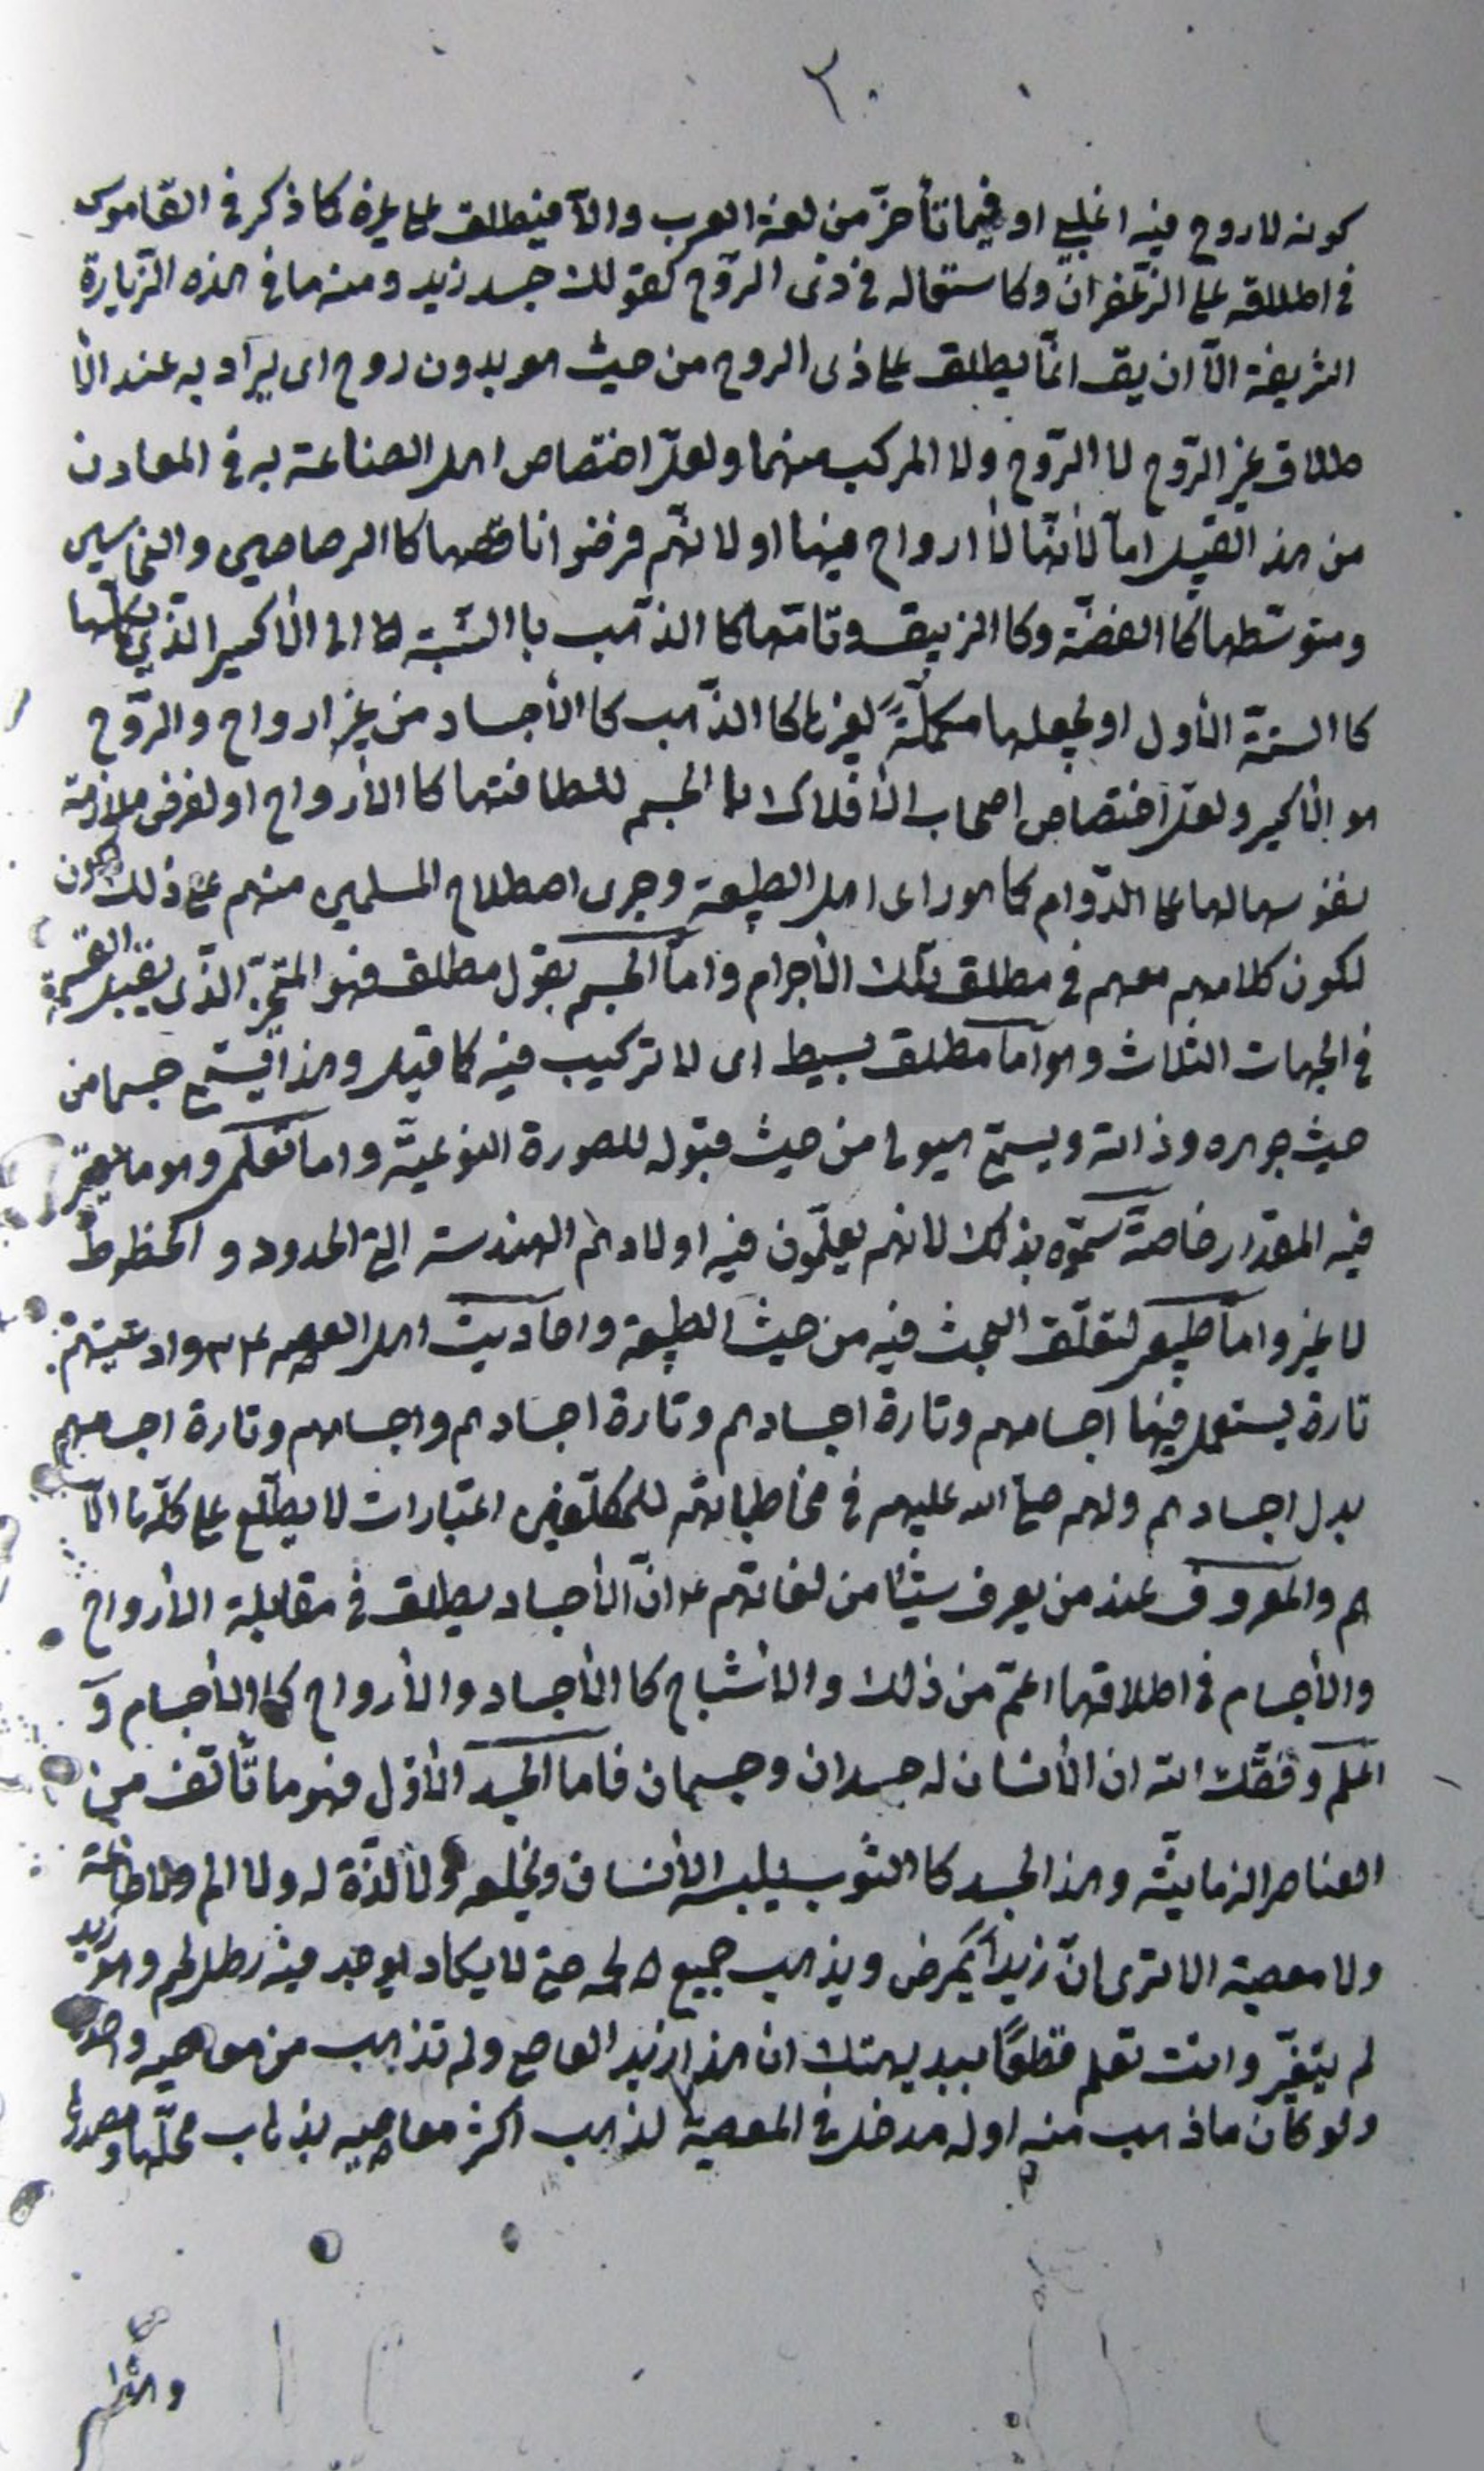 ٣٠
كونه لا روح فيه اغلبي او فيما تأخر من لغة العرب والا فينطلق على غيره كما ذكر فى القاموس
فى اطلاقه على الزعفران وكاستعماله فى ذى الروح كقولك جسد زيد ومنه ما فى هذه الزيارة
الشريفة الا ان يق انما يطلق على ذى الروح من حيث هو بدون روح اى يراد به عند الا
طلاق غير الروح لا الروح ولا المركب منهما ولعل اختصاص اهل الصناعة به فى المعادن
من هذ القبيل اما لانها لا ارواح فيها او لانهم فرضوا ناقصها كالرصاصين والنحاسين
ومتوسطها كالفضة وكالزيبق وتامها كالذهب بالنسبة الى الاكسير الذي
كالستة الاول او يجعلها مكملة لغيرها كالذهب كالاجساد من غير ارواح والروح
هو الاكسير ولعل اختصاص اصحاب الافلاك بالجسم للطافتها كالارواح او لفرض ملازمة
نفوسها لها على الدوام كما هو راى اهل الطبيعة وجرى اصطلاح المسلمين منهم على ذلك
لكون كلامهم معهم فى مطلق تلك الاجرام واما الجسم بقول مطلق فهو المتحيز الذى يقبل القسمة
فى الجهات الثلاث وهو اما مطلق بسيط اى لا تركيب فيه كما قيل وهذا يسمى جسما من
حيث جوهره وذاته ويسمى هيولى من حيث قبوله للصورة النوعية واما تعلمى وهو ما يعتبر
فيه المقدار خاصة سموه بذلك لانهم يعلمون فيه اولادهم الهندسة الى الحدود و الخطوط
لا غير واما طبيعى لتعلق البحث فيه من حيث الطبيعة واحاديث اهل العصمه ع وادعيتهم
تارة يستعمل فيها اجسامهم وتارة اجسادهم وتارة اجسادهم واجسامهم وتارة اجسامهم
بدل اجسادهم ولهم صلى الله عليهم فى مخاطباتهم للمكلفين اعتبارات لا يطلع على كلها الا
هم والمعروف عند من يعرف شيئا من لغاتهم ع ان الاجساد يطلق فى مقابلة الارواح
والاجسام فى اطلاقها اعم من ذلك والاشباح كالاجساد والارواح كالاجسام و
اعلم وفقك الله ان الانسان له جسدان وجسمان فاما الجسد الاول فهو ما تألف من
العناصر الزمانية وهذا الجسد كالثوب يلبسه الانسان ويخلعه ولا لذة له ولا الم ولا طاعة
ولا معصية الا ترى ان زيدا يمرض ويذهب جميع لحمه حتى لا يكاد يوجد فيه رطل لحم وهو زيد
لم يتغير وانت تعلم قطعا ببديهتك ان هذا زيد العاصى ولم تذهب من معاصيه واحدة
ولو كان ما ذهب منه او له مدخل فى المعصية لذهب اكثر معاصيه بذهاب محلها ومصدرها